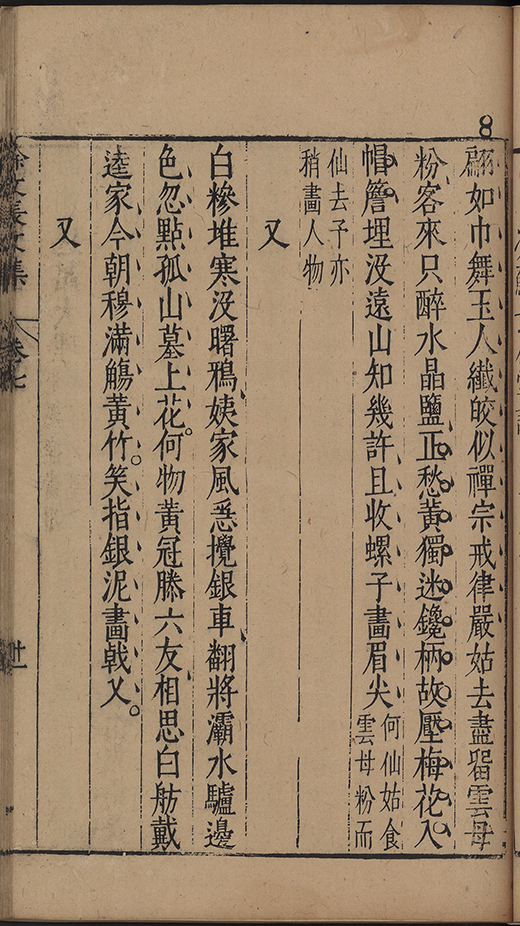 8
翩如巾舞玉人纖皎似禪宗戒律嚴姑去盡留雲母
粉客來只醉水晶鹽正愁黃獨迷鑱柄故壓梅花入
帽簷埋沒遠山知幾許且收螺子畫眉尖何仙姑食雲母粉而
仙去予亦稍畫人物
又
白糝堆寒沒曙鴉姨家風惡攪銀車翻將灞水驢邊
色忽點孤山墓上花何物黃冠賸六友相思白舫戴
逵家今朝穆滿觴黃竹笑指銀泥畫戟叉
又
徐文長文集 卷七 廿一